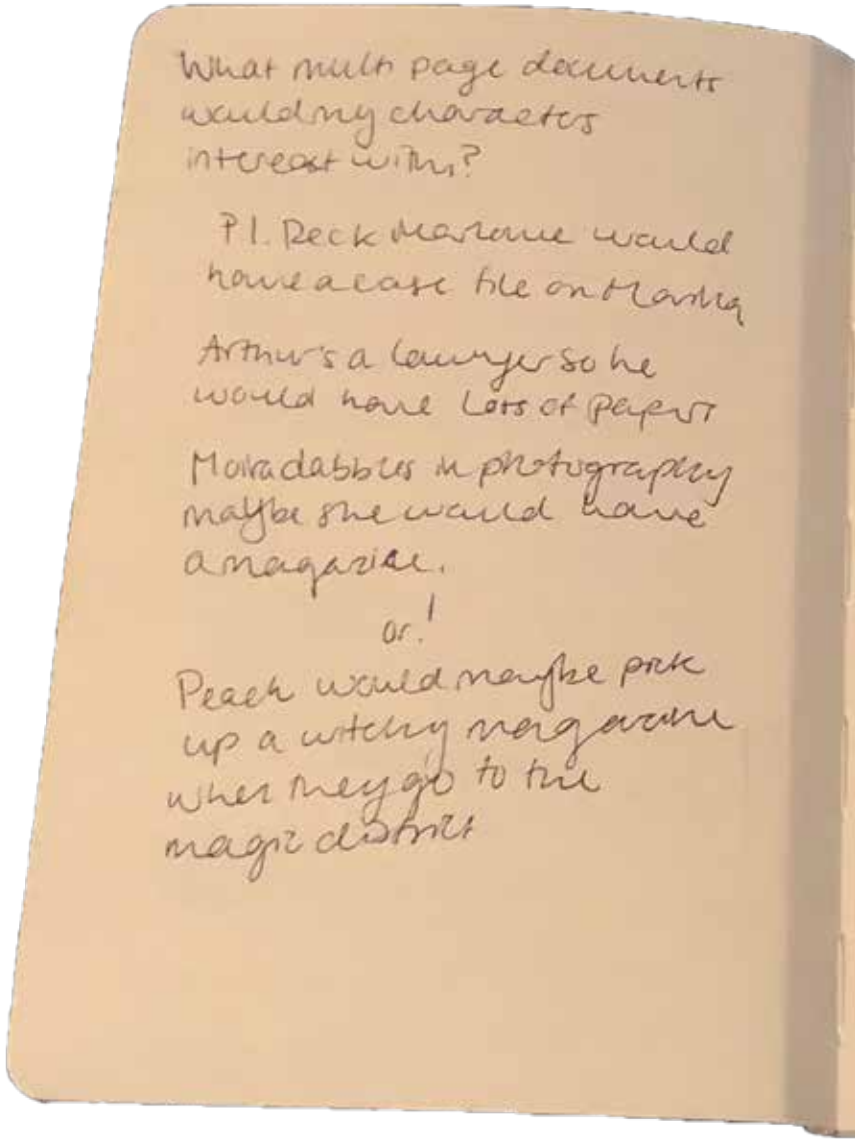 What multi page documents
would my characters
interact with?
P.I. Deck Marlowe would
have a case file on
Arthur's a lawyer so he
would have lots of papers
Moira dabbles in photography
maybe she would have
a magazine.
or!
Peach would maybe pick
up a witchy magazine
when they go to the
magic district